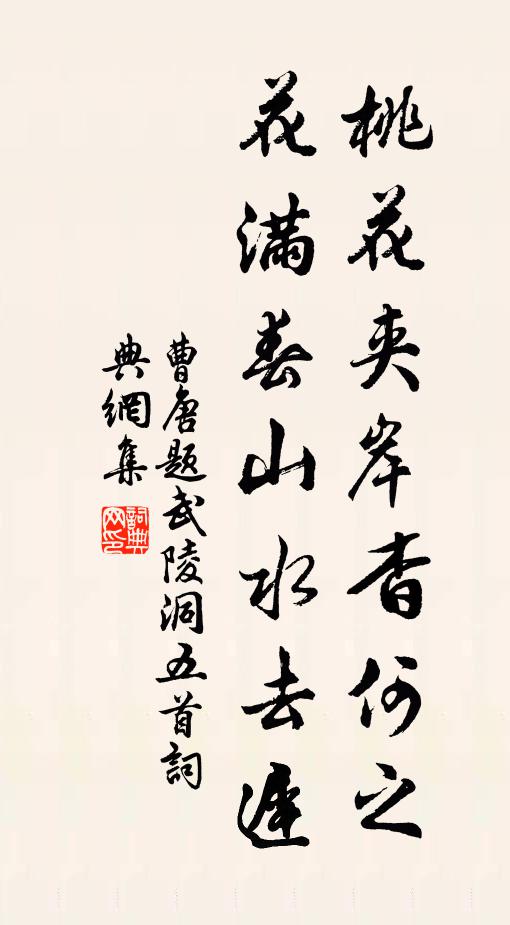 桃花夾岸杳何之
花滿春山水去遲
曹唐題武陵洞五首詞
典網集
詞典網印